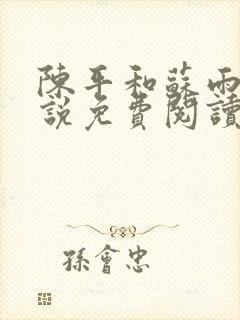 陳平和蘇雨
說免費閱讀
孫會忠